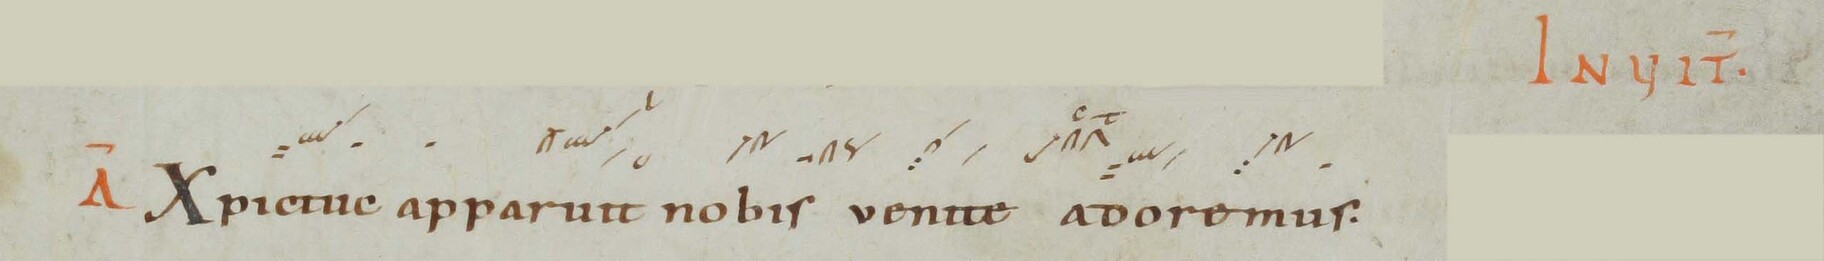 INVIT̅.
A̅ Xpictuc apparuit nobis venite adoremus.